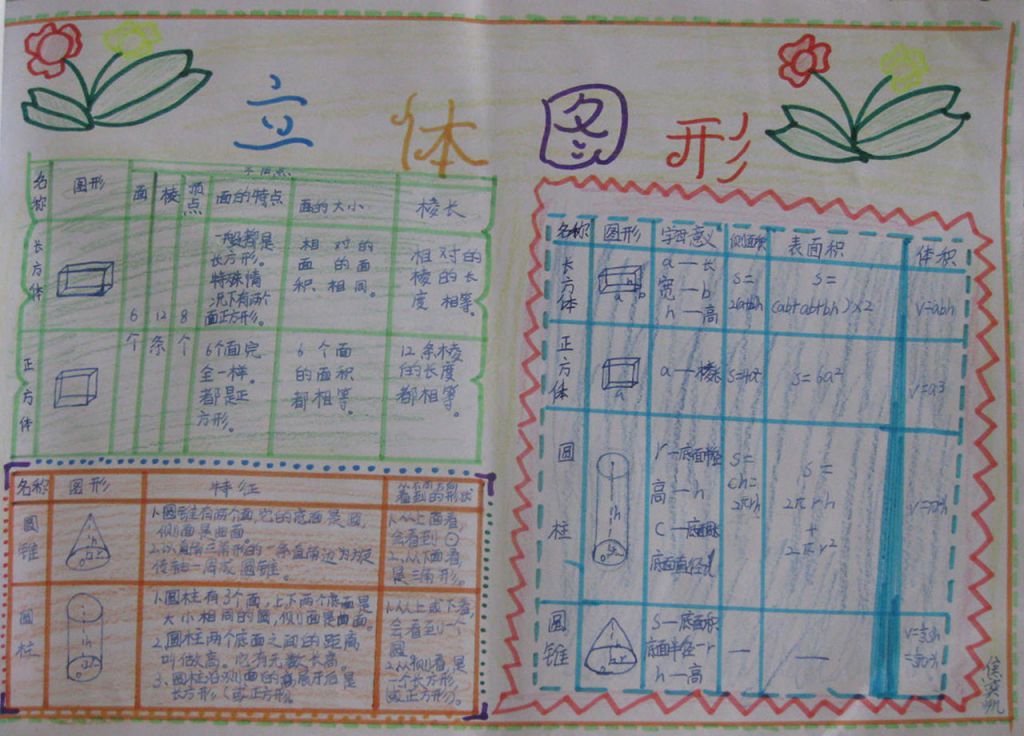 立体图形
名称 图形 面 棱 顶点 面的特点 面的大小 棱长
长方体
6个 12条 8个
一般都是
长方形。
特殊情
况下有两个
面正方形。
相对的
面的面
积相同。
相对的
棱的长
度相等。
正方体
6个面完
全一样。
都是正
方形。
6个面
的面积
都相等。
12条棱
的长度
都相等。
名称 图形 特征 看到的形状
圆锥
h
r
1.圆锥有两个面,它的底面是圆,
侧面是曲面。
1.从上面看,
会看到⊙
2.从下面看
是三角形。
圆柱
h
1.圆柱有3个面,上下两个底面是
大小相同的圆,侧面是曲面。
2.圆柱两个底面之间的距离
叫做高。它有无数长高。
3、圆柱沿侧面的高展开后是
长方形(或正方形)。
1.从上或下看,
会看到一个
圆
2.从侧看,是
一个长方形
或正方形)。
名称 图形 字母意义 侧面积 表面积 体积
长方体
a b
a—长
宽—b
h—高
S=
S=
(ab+ab+bh)×2
V=abh
正方体
a
a—棱长
S=4a²
S=6a²
V=a³
圆柱
h
r—底面半径
高—h
C—底面周长
S=
Ch=
2πrh
S=
2πrh
+
2πr²
圆锥
S—底面积
底面半径—r
h—高
—
—